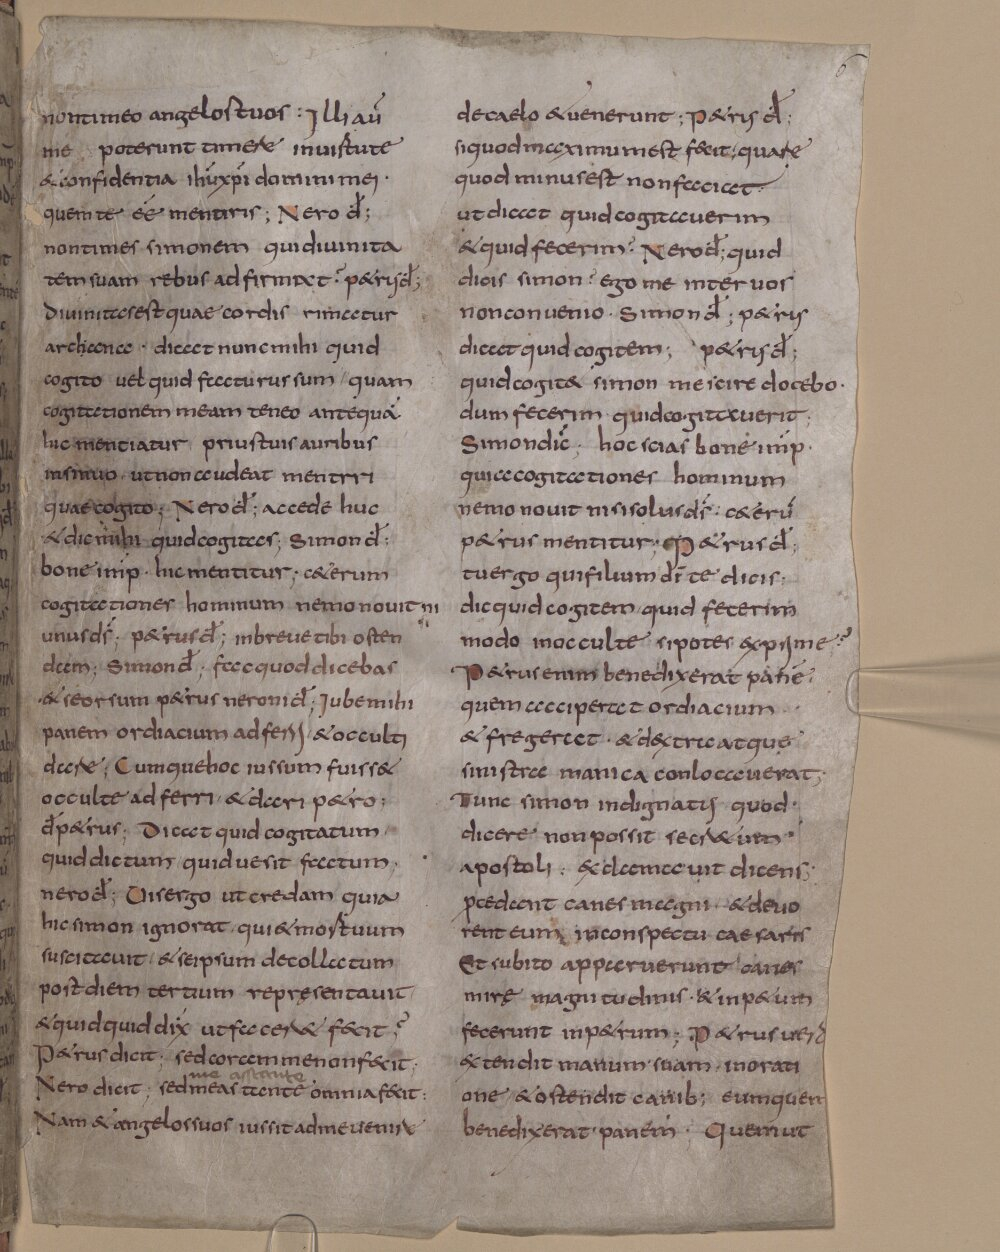 non timeo angelos tuos : Illi aū
me poterunt timere in uirtute
& confidentia ihū xpi domini mei ·
quem te eē mentiris ; Nero dt̄ ;
non times simonem qui diuinita
tem suam rebus adfirmat ? p&rus dt̄ ;
Diuinitas est quae cordis rimatur
archana · dicat nunc mihi quid
cogito uel quid facturus sum / quam
cogitationem meam teneo antequā
hic mentiatur priustuis auribus
insinuo · ut non audeat mentiri
quae cogito ; Nero dt̄ ; accede huc
& dic mihi quid cogitas ; Simon dt̄ :
bone imp̄ · hic mentitur ; c&erum
cogitationes hominum nemo nouit ni
unus dś ; p&rus dt̄ ; in breue tibi osten
dam ; Simon dt̄ ; fac quod dicebas
& seorsum p&rus neroni dt̄ ; Iube mihi
panem ordiacium adferri & occulti
dare ; Cumque hoc iussum fuiss&
occulte adferri · & dari p&ro ;
dt̄ p&rus ; Dicat quid cogitatum
quid dictum quidue sit factum ·
nero dt̄ ; Uis ergo ut credam quia
hic simon ignorat · qui & mortuum
suscitauit / & se ipsum decollatum
post diem tertium representauit
& quidquid dix ut facer& fecit ?
P&rus dicit ; sed coram me non fecit ;
me astante
Nero dicit ; sed me astante omnia fecit :
Nam & angelos suos iussit ad me uenire
de caelo & uenerunt ; P&rus dt̄ ;
si quod maximum est fecit / quare
quod minus est non faciat ·
ut dicat quid cogitauerim
& quid fecerim ? Nero dt̄ ; quid
dicis simon ? ego me inter uos
non conuenio · Simon dt̄ ; p&rus
dicat quid cogitem ; p&rus dt̄ ;
quid cogit& simon me scire docebo ·
dum fecerim quid cogitauerit ;
Simon dić ; hoc scias bone imp̄ ·
quia cogitationes hominum
nemo nouit nisi solus dś · c&erū
p&rus mentitur ; P&rus dt̄ ;
tu ergo qui filium dī te dicis ;
dic quid cogitem / quid fecerim
modo in occulte si potes exprime ?
P&rus enim benedixerat panē ;
quem acciperat ordiacium ·
& fregerat · & dextra atque
sinistra manica conlocauerat ;
Tunc simon indignatus quod
dicere non possit secr&um
apostoli : exclamauit dicens ;
p̄cedant canes magni · & deuo
rent eum in conspectu caesaris
Et subito apparuerunt canes
mirę magnitudinis · & inp&um
fecerunt in p&rum ; P&rus uero
extendit manum suam in orati
one & ostendit canib; eumquem
benedixerat panem · Quem ut